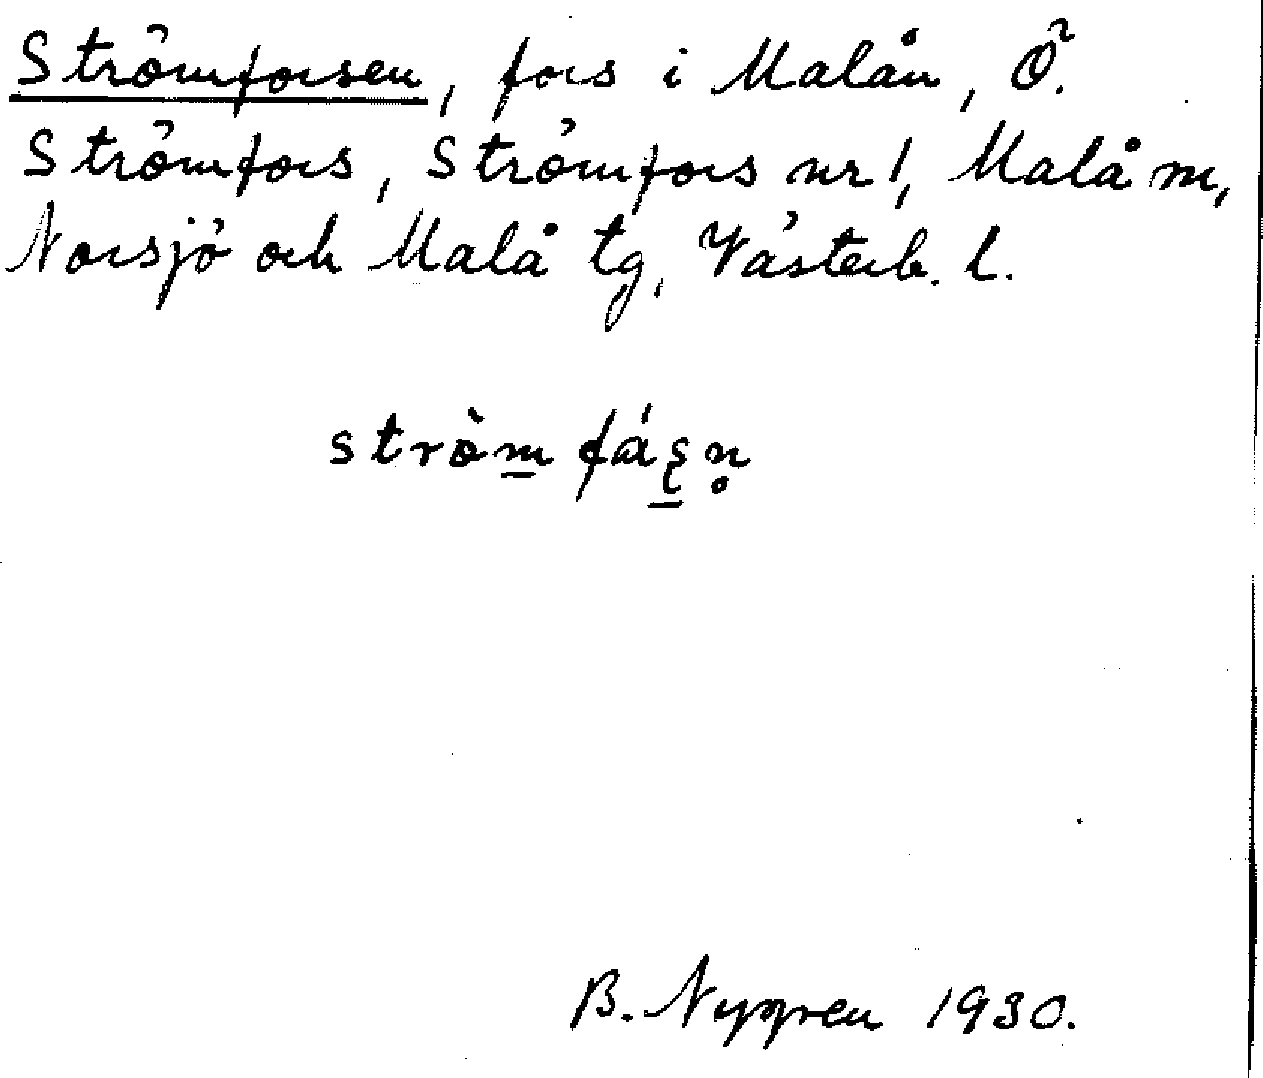 Strömforsen, fors i Malån, Ö.
Strömfors, Strömfors nr 1, Malå sn,
Norsjö och Malå tg, Västerb. l.
strö̀m̲ fáʂ̲n̥
B. Nygren 1930.